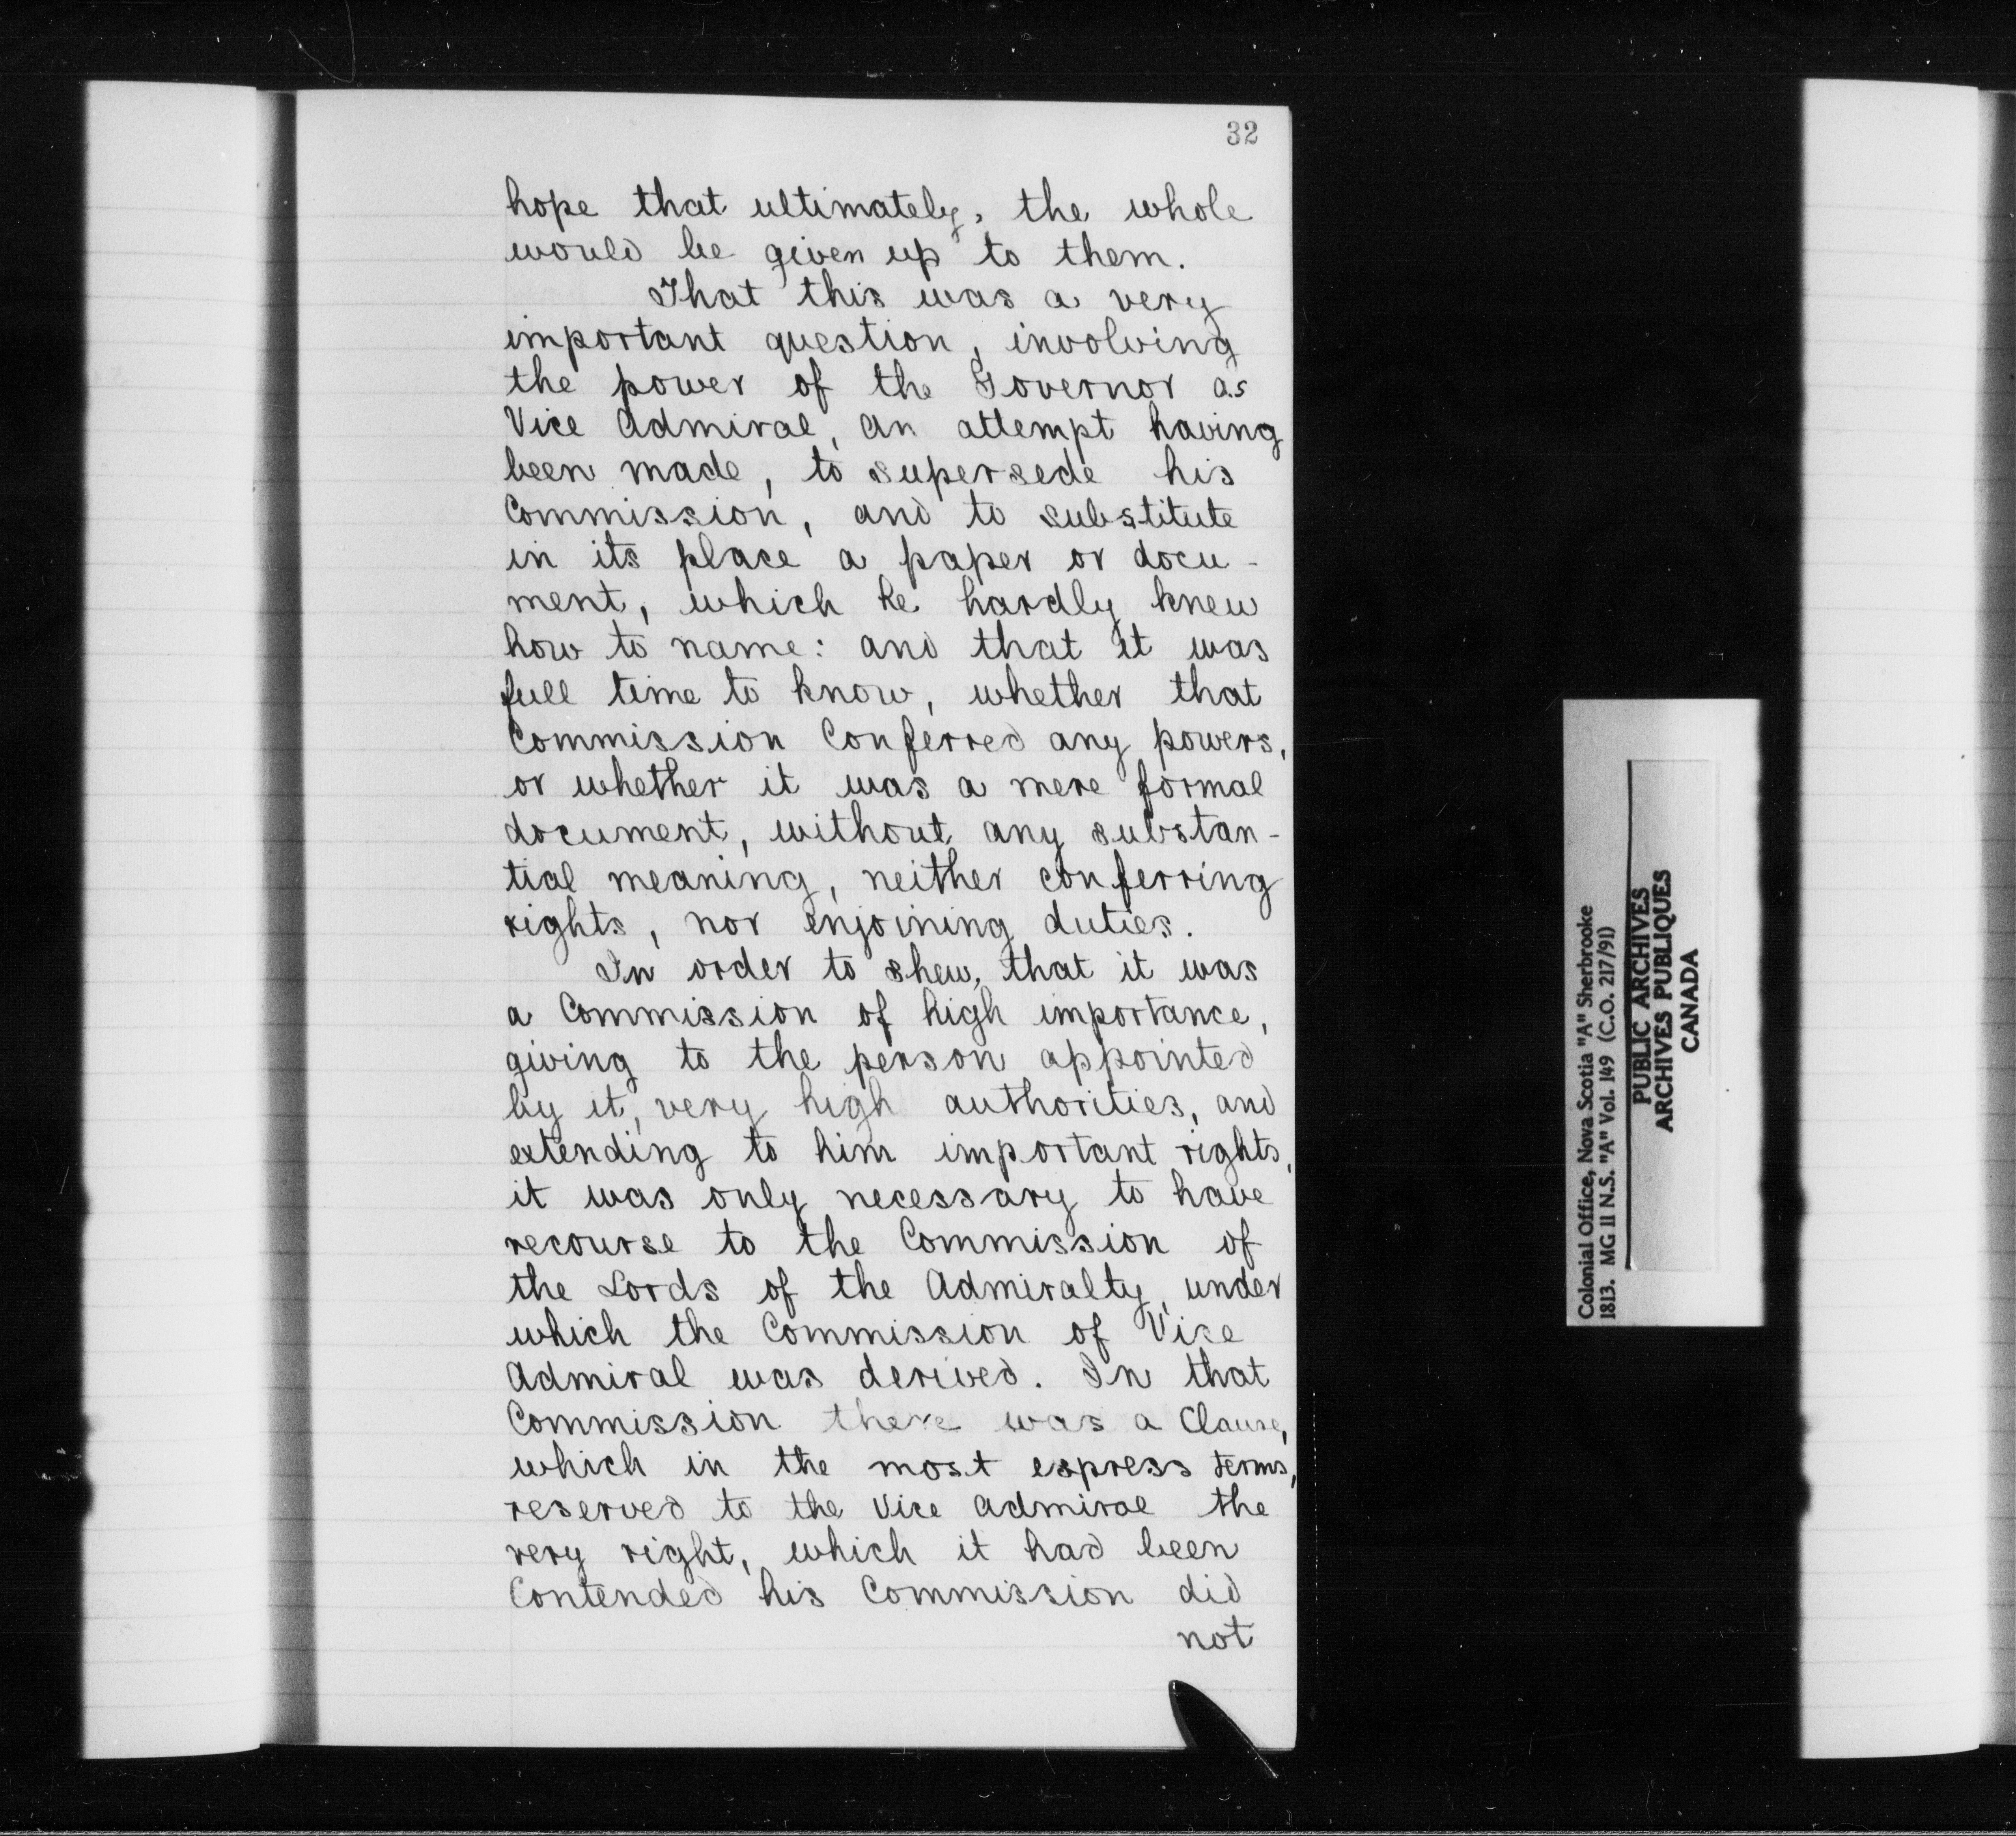 32
hope that ultimately, the whole
would be given up to them.
That this was a very
important question, involving
the power of the Governor as
Vice Admiral, an attempt having
been made, to supersede his
Commission, and to substitute
in its place a paper or docu-
ment, which he hardly knew
how to name: and that it was
full time to know, whether that
Commission Conferred any powers,
or whether it was a mere formal
document, without any substan-
tial meaning, neither conferring
rights, nor enjoining duties.
In order to shew, that it was
a Commission of high importance,
giving to the person appointed
by it, very high authorities, and
extending to him important rights,
it was only necessary to have
recourse to the Commission of
the Lords of the Admiralty, under
which the Commission of Vice
Admiral was derived. In that
Commission there was a Clause,
which in the most express terms,
reserved to the Vice Admiral the
very right, which it had been
Contended his Commission did
not
Colonial Office, Nova Scotia "A" Sherbrooke
1813. MG 11 N.S. "A" Vol. 149 (C.O. 217/91)
PUBLIC ARCHIVES
ARCHIVES PUBLIQUES
CANADA